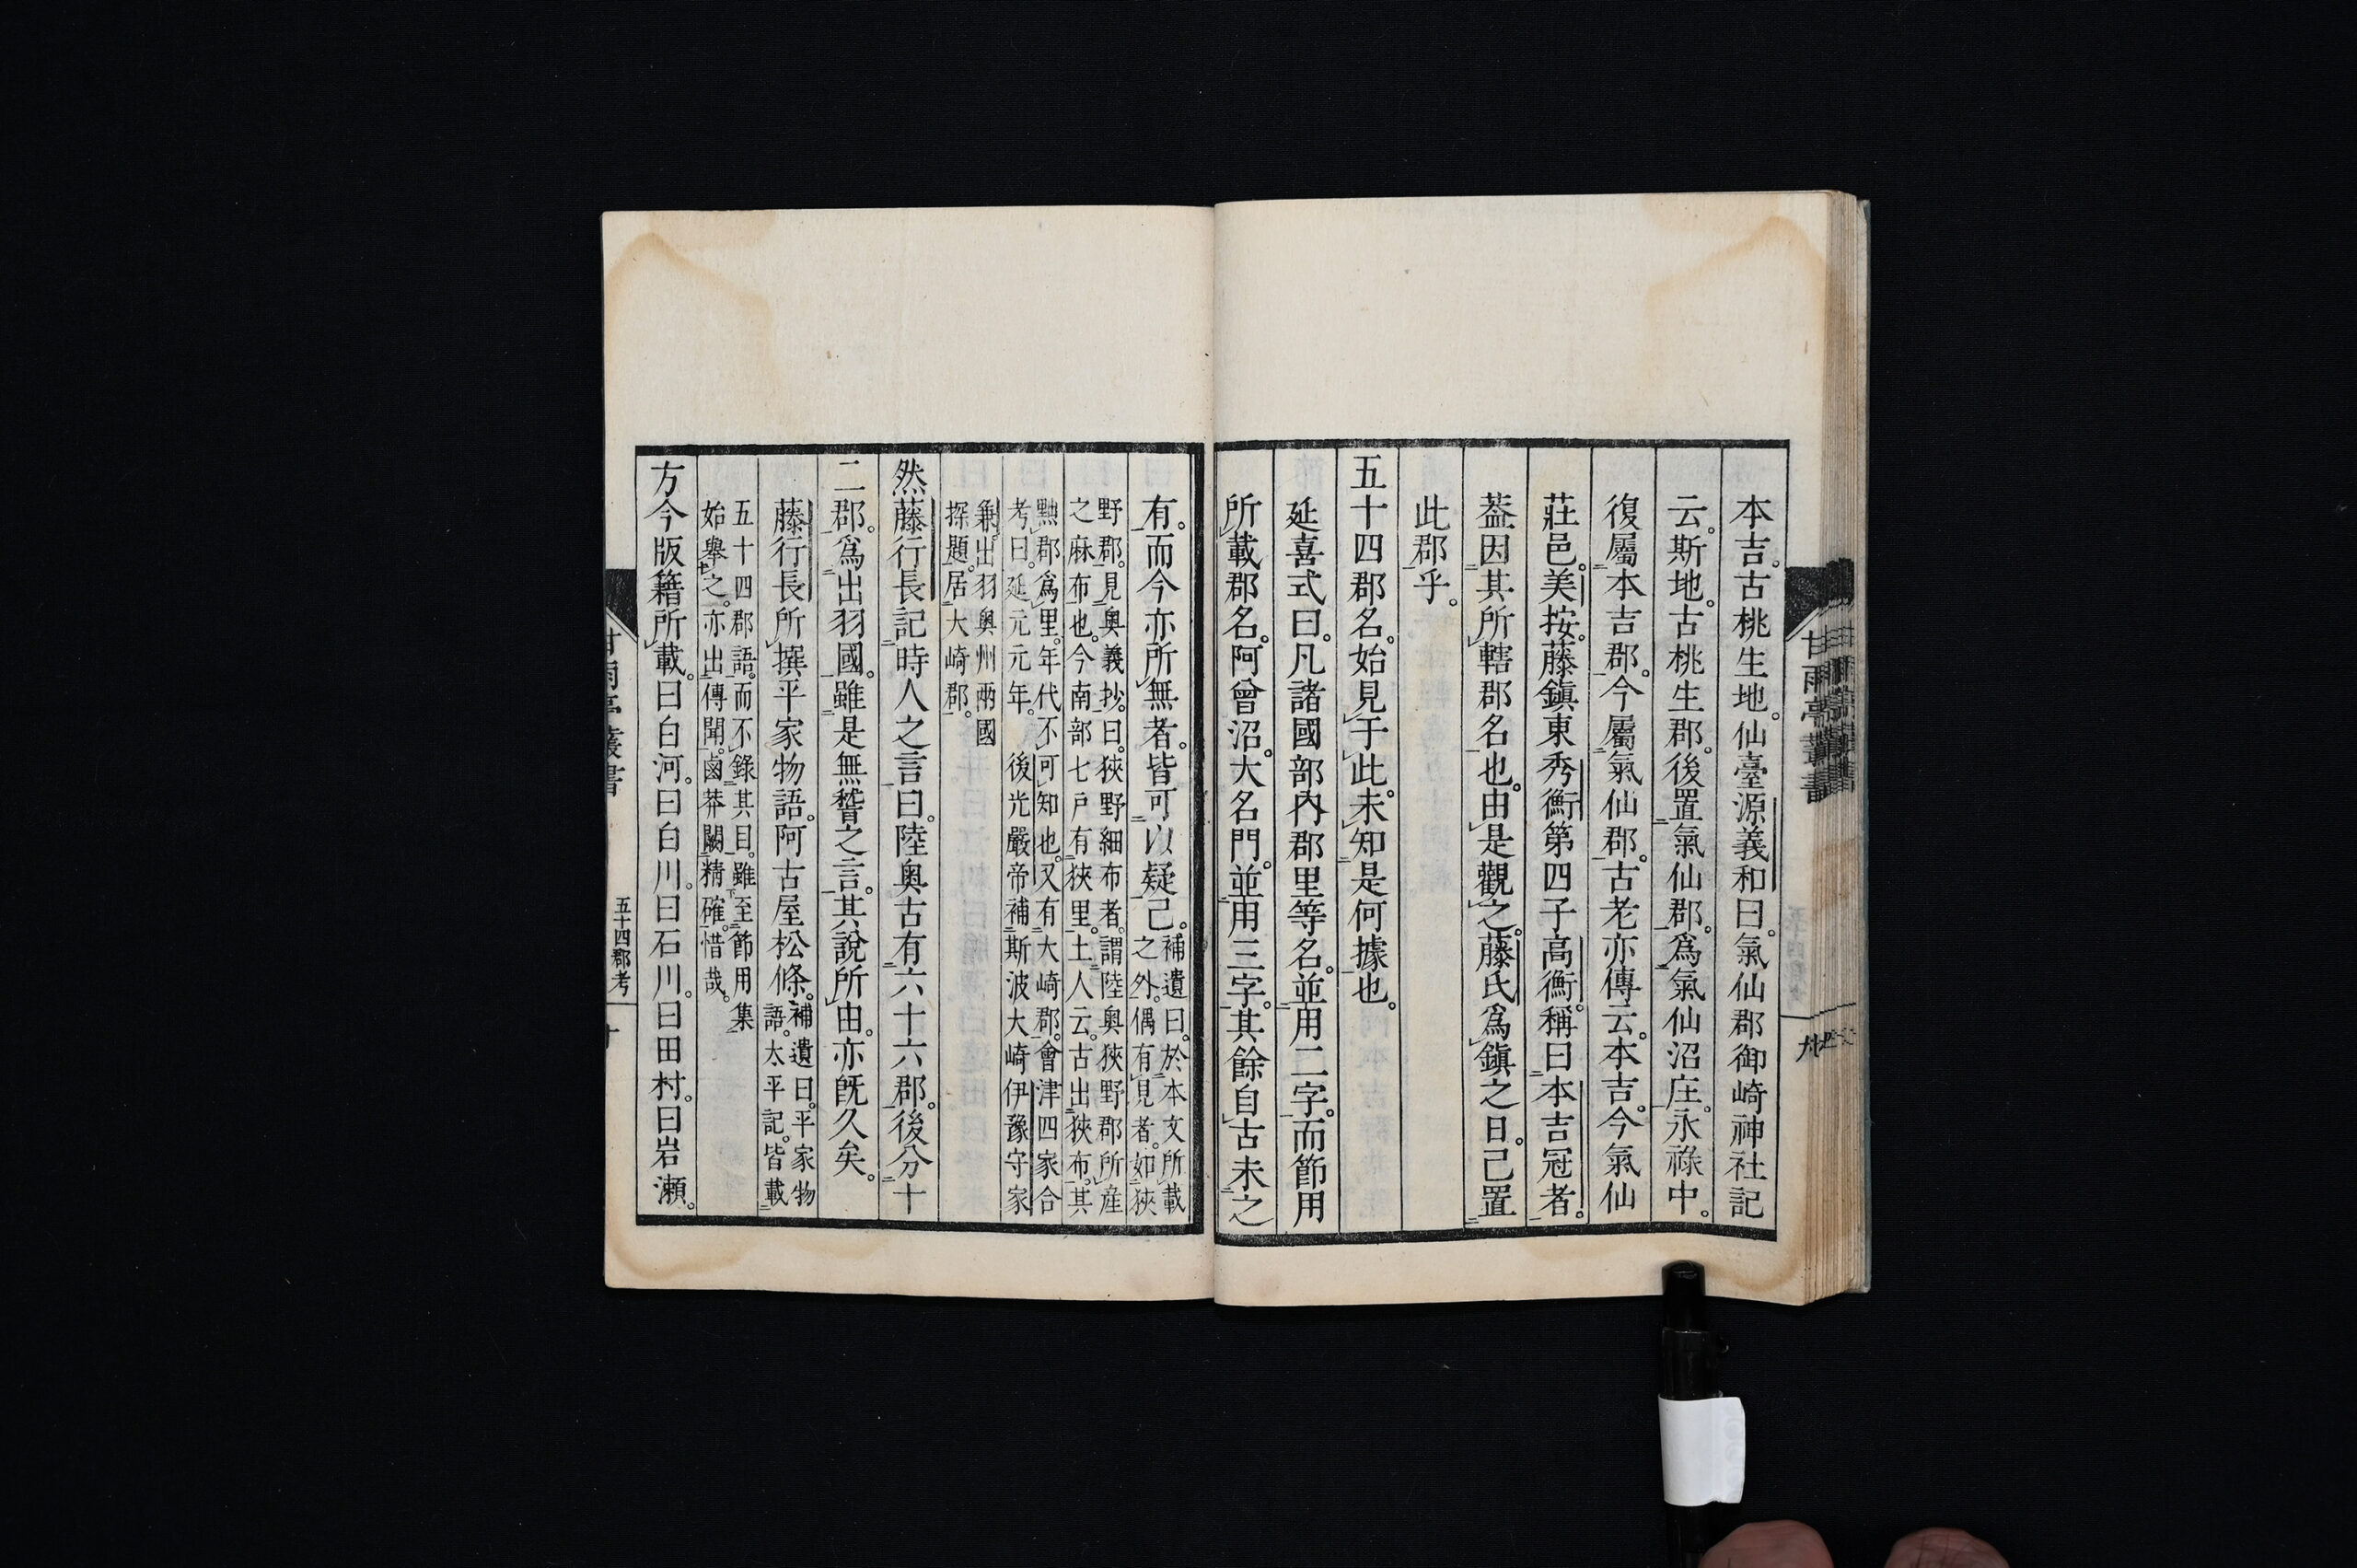 本吉。古桃生地。仙臺源義和曰。氣仙郡御崎神社記
云。斯地。古桃生郡。後置氣仙郡。爲氣仙沼庄。永祿中。
復屬本吉郡。今屬氣仙郡。古老亦傳云。本吉。今氣仙
莊邑。美按。藤鎭東秀衡第四子高衡。稱曰本吉冠者。
葢因其所轄郡名也。由是觀之。藤氏爲鎭之日。己置
此郡乎。
五十四郡名。始見于此。未知是何據也。
延喜式曰。凡諸國部內郡里等名。並用二字。而節用
所載郡名。阿曾沼。大名門。並用三字。其餘自古未之
有。而今亦所無者。皆可以疑己。
補遺曰。於本文所載
之外。偶有見者。如狹
野郡。見奥義抄。曰。狹野細布者。謂陸奥狹野郡所產
之麻布也。今南部七戸有狹里。土人云。古出狹布。其
黝郡爲里。年代不可知也。又有大崎郡。會津四家合
考曰。延元元年。後光嚴帝補斯波大崎伊豫守家
兼出羽奥州兩國
探題。居大崎郡。
然藤行長記時人之言曰。陸奥古有六十六郡。後分十
二郡。爲出羽國。雖是無稽之言。其說所由。亦旣久矣。
藤行長所撰平家物語。阿古屋松條。
補遺曰。平家物
語。太平記。皆載
五十四郡語。而不錄其目。雖至節用集
始舉之。亦出傳聞。鹵莽闕精確。惜哉。
方今版籍所載。曰白河。曰白川。曰石川。曰田村。曰岩瀬。
甘雨亭叢書
五十四郡考
十
甘雨亭叢書
九